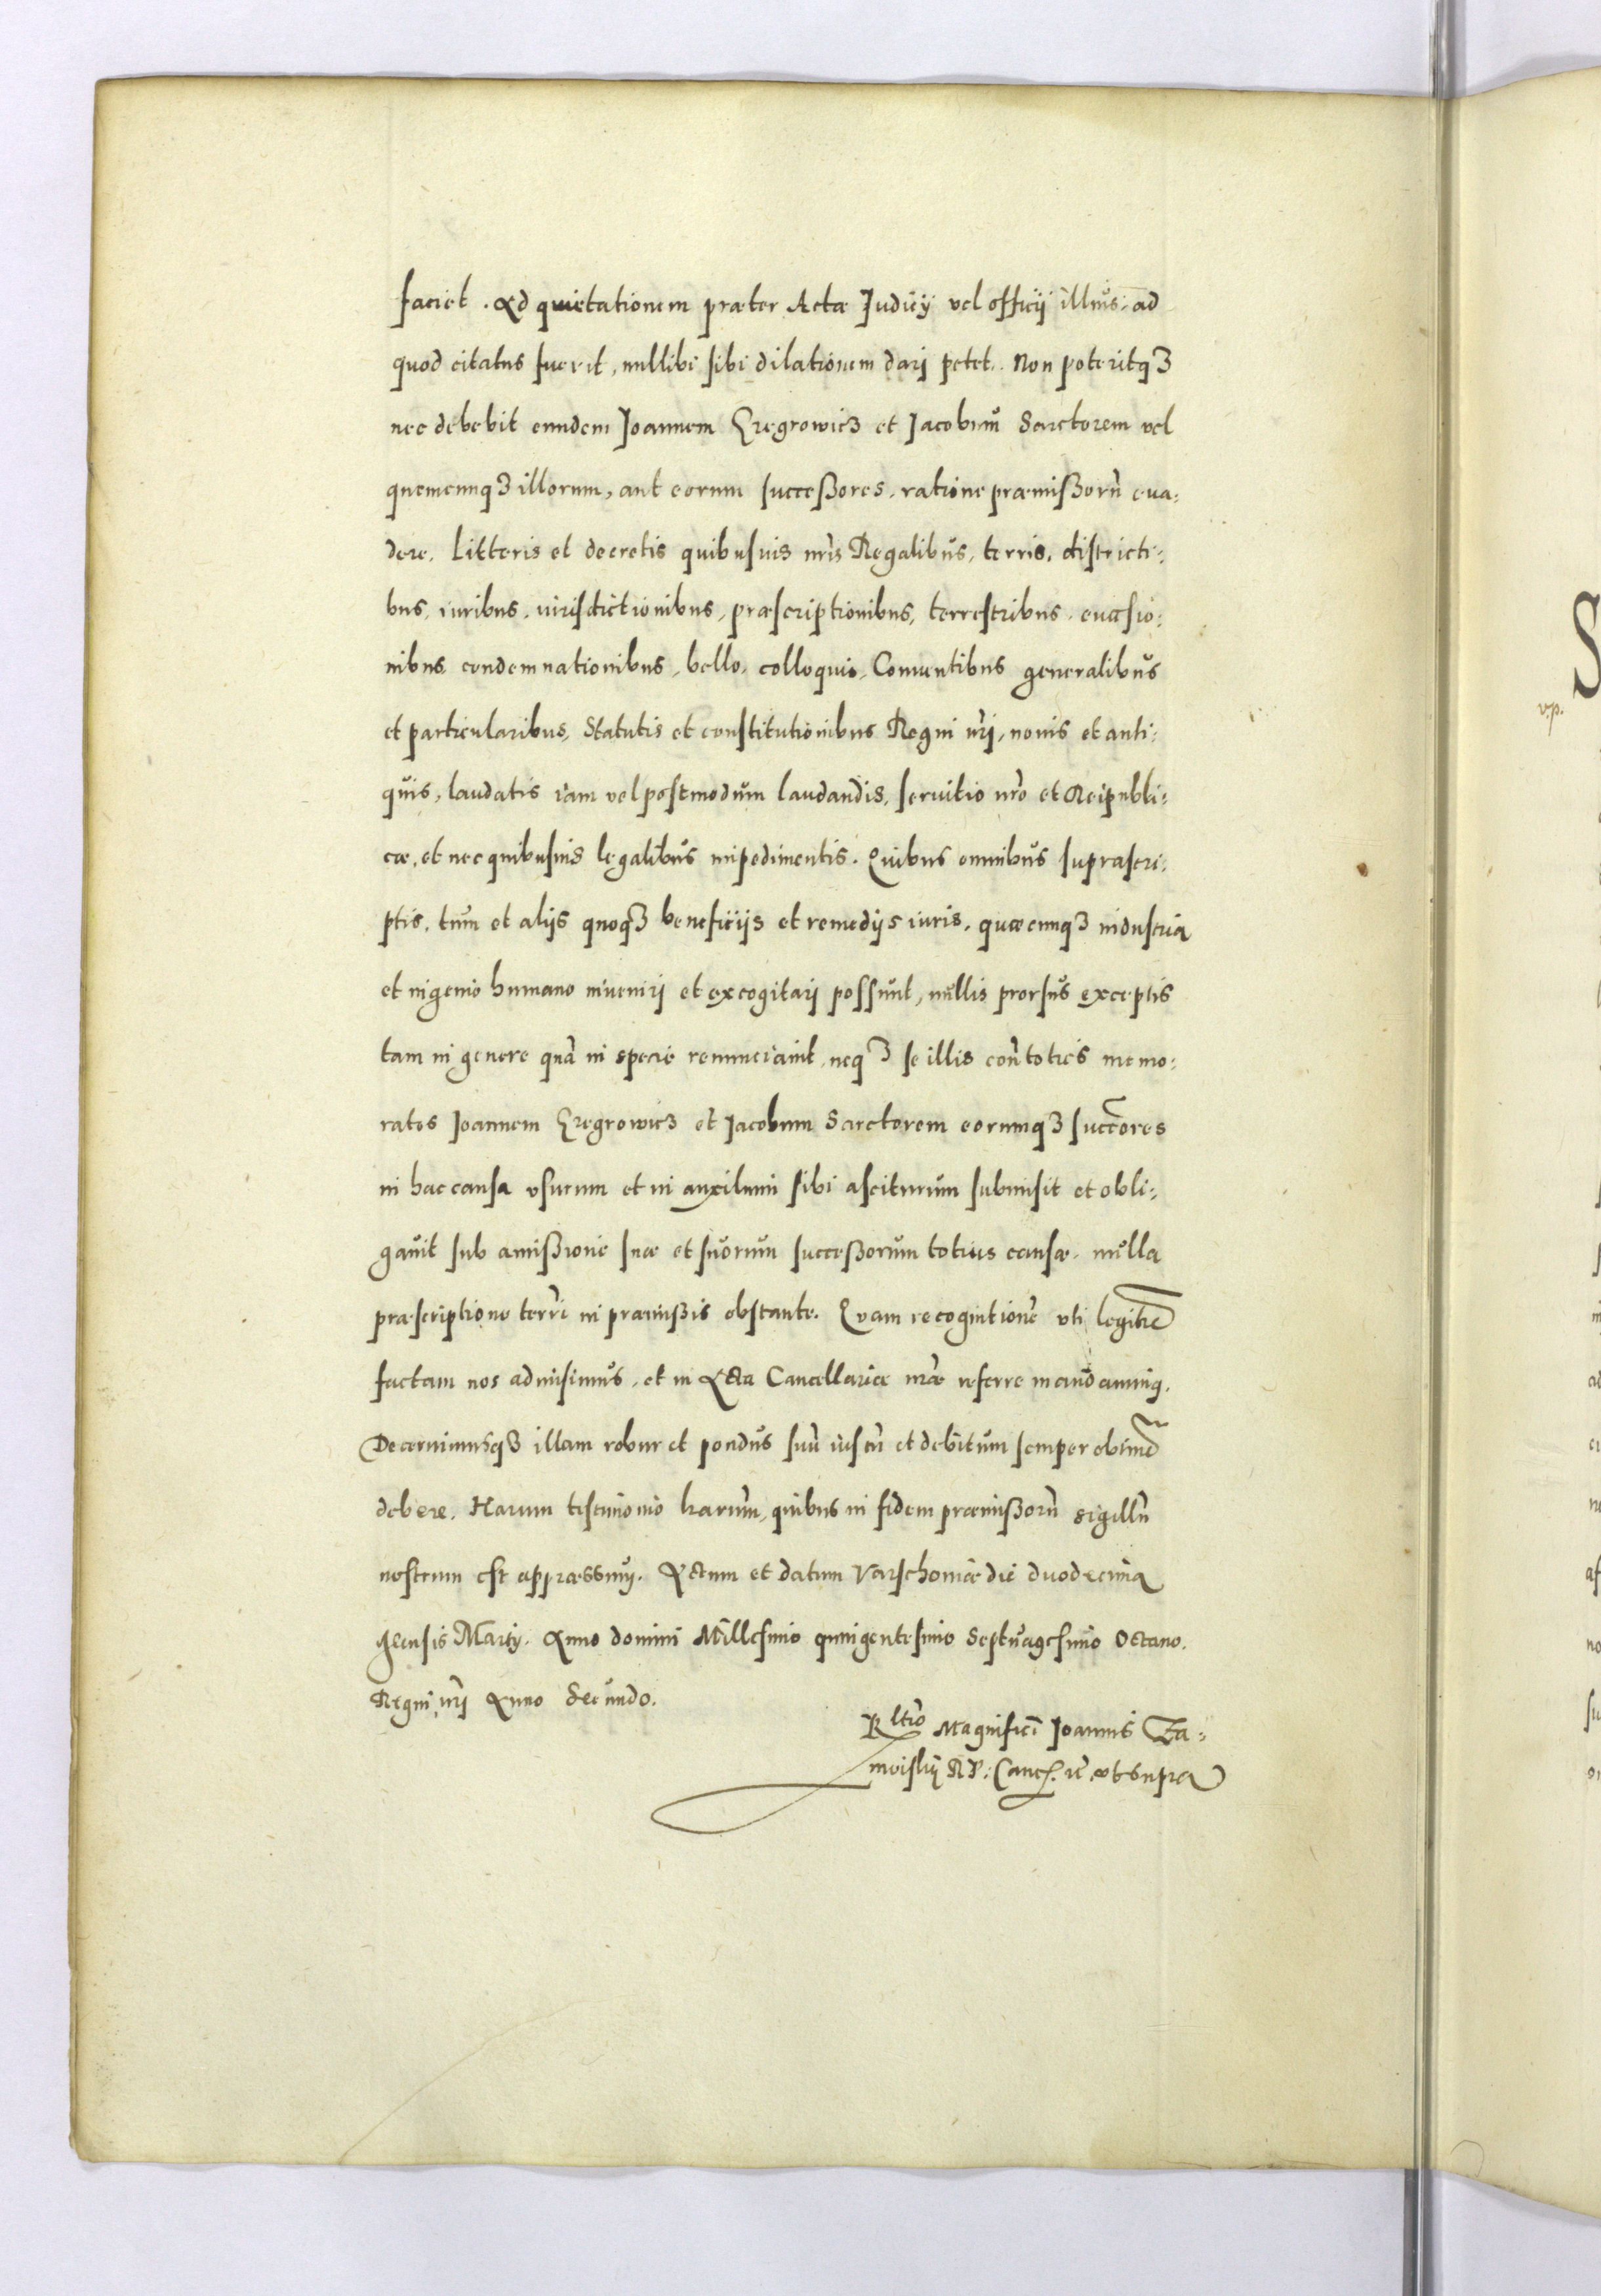 faciet. Ad quietationem præter Acta Judicÿ vel officij illius, ad
quod citatus fuerit, nullibi sibi dilationem dari petet. Non poteritqȝ
nec debebit eundem Joannem Gregrowicȝ et Jacobum Sarctorem vel
quemcunqȝ illorum, aut eorum successores, ratione præmissorũ eua:
dere. Litteris et decretis quibusuis nr̃is Regalibus, terris, districti:
bus, iuribus, iurisdictionibus, præscriptionibus, terrestribus, euasio:
nibus, condemnationibus, bello, colloquio, Conuentibus generalibus
et particularibus, Statutis et constitutionibus Regni nr̃i, nouis et anti:
quis, laudatis iam vel postmodum laudandis, seruitio nr̃o et Reipubli:
cæ, et nec quibusuis legalibus impedimentis. Quibus omnibus suprascri:
ptis, tum et alijs quoqȝ beneficijs et remedijs iuris, quæcunqȝ industria
et ingenio humano inueniri et excogitari possunt, nullis prorsus exceptis
tam in genere quã in specie renunciauit, neqȝ se illis con͠ toties memo:
ratos Joannem Gregrowicȝ et Jacobum Sarctorem eorumqȝ succ͠ores
in hac causa vsurum et in auxilium sibi asciturum submisit et obli:
gauit sub amissione suæ et suorum successorum totius causæ, nulla
præscriptione terr̃i in præmissis obstante. Quam recognitionẽ vti legitiẽ
factam nos admisimus, et in Acta Cancellariæ nr̃æ referre mandauimꝯ.
Decernimusqȝ illam robur et pondus suũ iustũ et debitum semper obtinẽ
debere. Harum testimonio l̃rarum, quibus in fidem præmissorũ sigillũ
nostrum est appræssum. Actum et datum Varschouiæ die duodecima
Mensis Martÿ. Anno domini Millesimo quingentesimo Septuagesimo Octauo.
Regni nr̃i Anno Secundo.
Rltio Magnifici Joannis Za:
moiskij R P: Canc. ꝛc̃ vt supra
v.p.
S